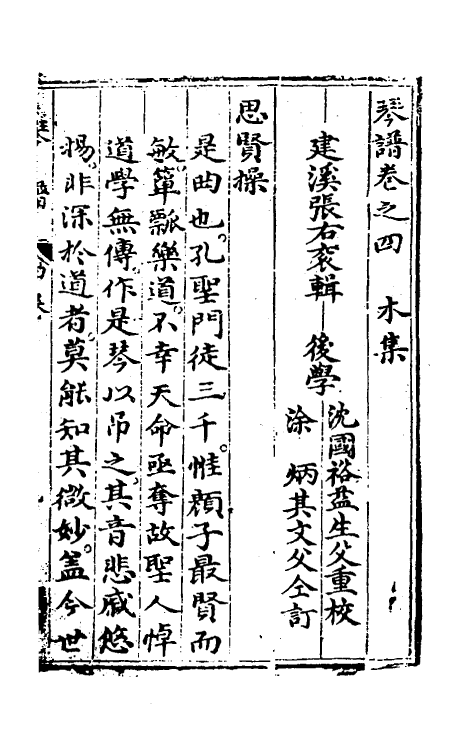 琴譜卷之四　木集
建溪張右袞輯　後學
沈國裕益生父重校
涂　炳其文父仝訂
思賢操
是曲也。孔聖門徒三千。惟顏子最賢而
敏。簞瓢樂道。不幸天命亟奪故聖人悼
道學無傳。作是琴以吊之。其音悲慼悠
暢。非深於道者。莫能知其微妙。盖今世